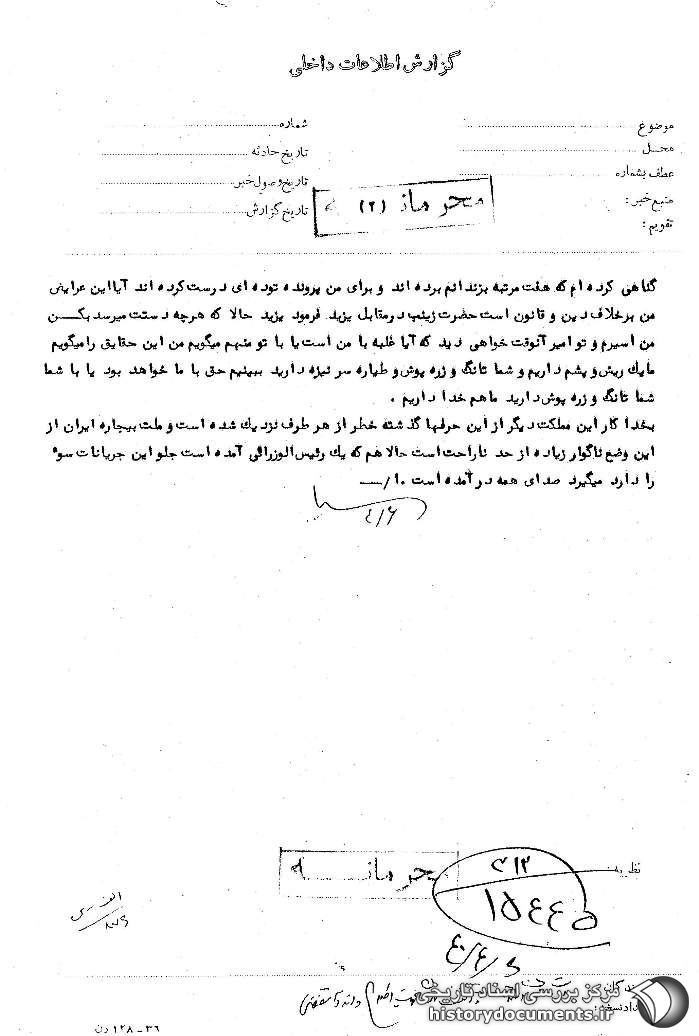 گزارش اطلاعات داخلی
موضوع
شماره
محل
تاریخ حادثه
عطف بشماره
تاریخ وصول خبر
منبع خبر:
تاریخ گزارش
تقویم:
محرمانه (۲)
گناهی کرده ام که هفت مرتبه بزندانم برده اند و برای من پرونده توده ای درست کرده اند آیا این عرایض
من برخلاف دین و قانون است حضرت زینب درمقابل یزید فرمود یزید حالا که هرچه دستت میرسد بکن
من اسیرم و تو امیر آنوقت خواهی دید که آیا غلبه با من است یا با تو منهم میگویم من این حقایق را میگویم
مایک ریش و پشم داریم و شما تانگ و زره پوش و طیاره سر نیزه دارید ببینیم حق با ما خواهد بود یا با شما
شما تانگ و زره پوش دارید ماهم خدا داریم .
بخدا کار این مملکت دیگر از این حرفها گذشته خطر از هر طرف نزدیک شده است و ملت بیچاره ایران از
این وضع ناگوار زیاده از حد ناراحت است حالا هم که یک رئیس الوزرائی آمده است جلو این جریانات سوء
را دارد میگیرد صدای همه درآمده است .
۴/۶
نظریه
محرمانه
۳۱۲
۱۵۴۴۵
۴۰/۴/۵
مرکز بررسی اسناد تاریخی
historydocuments.ir
۳۶ - ۱۲۸ دن